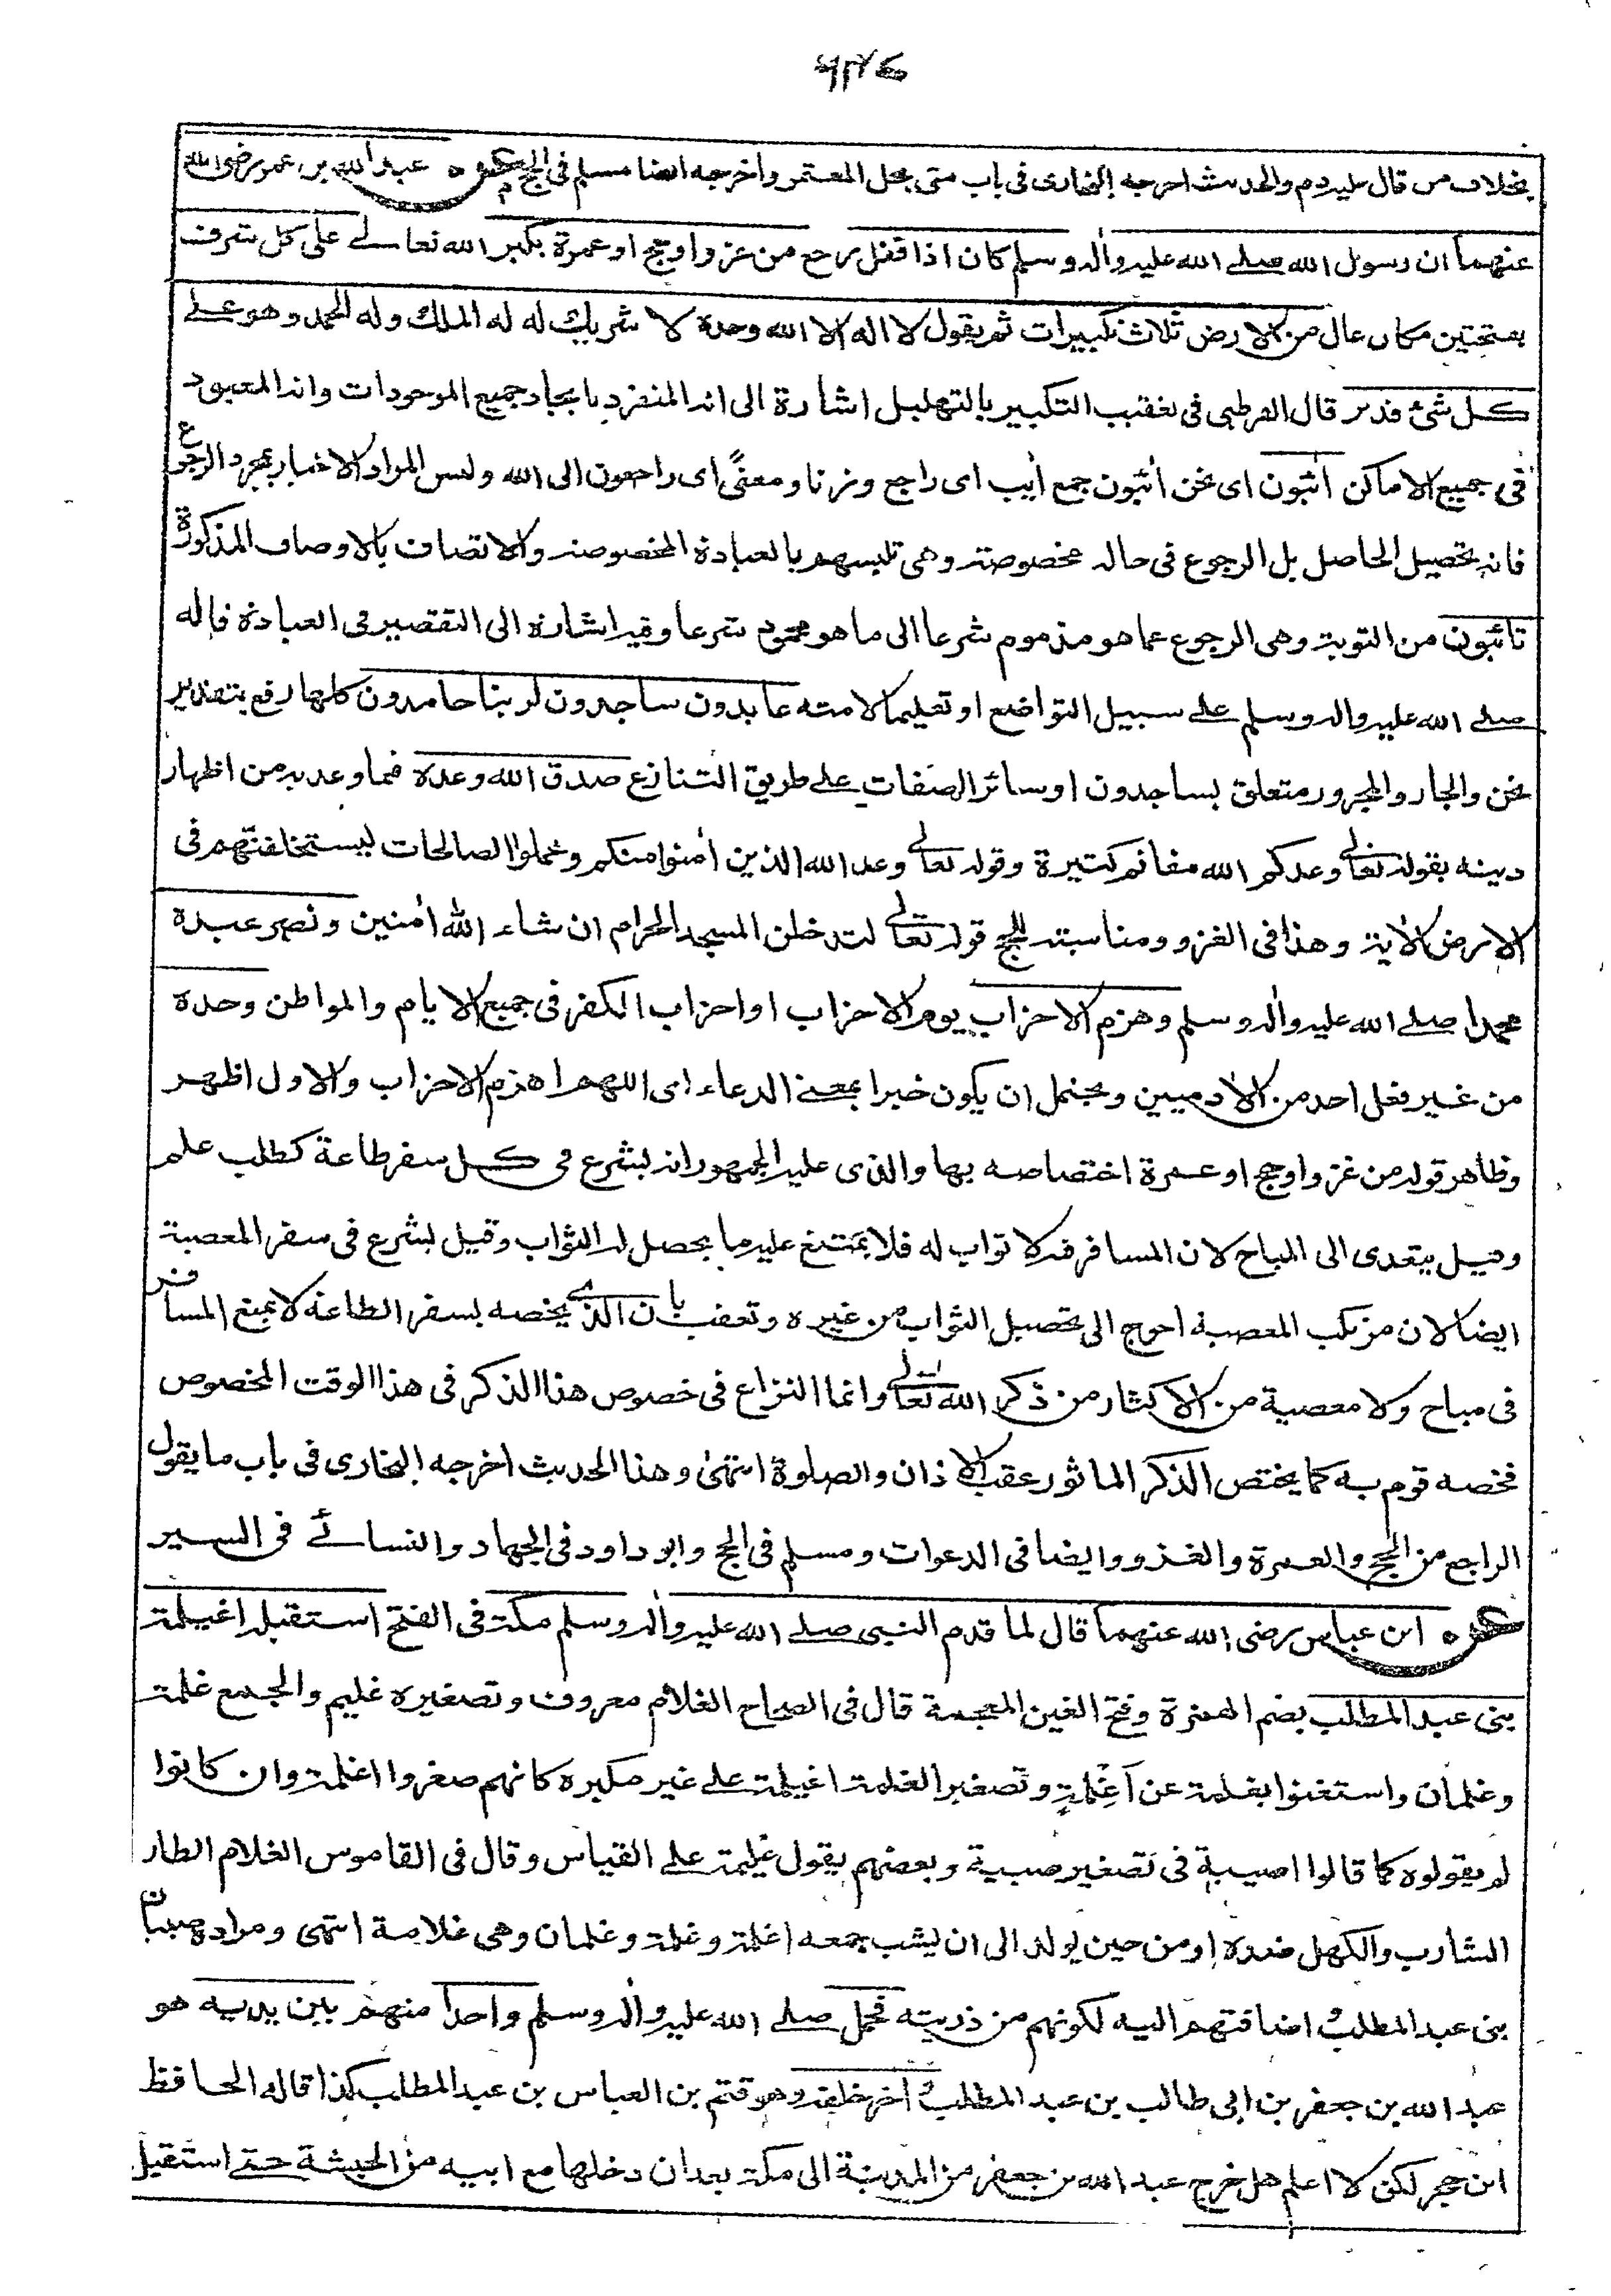 بخلاف من قال عليه دم والحديث اخرجه البخارى فى باب متى يحل المعتمر واخرجه ايضا مسلم فى الحج عن عبد الله بن عمر رضى الله
عنهما ان رسول الله صلى الله عليه واله وسلم كان اذا قفل رجع من غزو او حج او عمرة يكبر الله تعالى على كل شرف
بفتحتين مكان عال من الارض ثلاث تكبيرات ثم يقول لا اله الا الله وحده لا شريك له له الملك وله الحمد وهو على
كل شئ قدير قال القرطبى فى تعقيب التكبير بالتهليل اشارة الى انه المنفرد بايجاد جميع الموجودات وانه المعبود
فى جميع الاماكن آئبون اى نحن آئبون جمع آيب اى راجع وزنا ومعنًى اى راجعون الى الله وليس المراد الاخبار بمجرد الرجوع
فانه تحصيل الحاصل بل الرجوع فى حالة مخصوصة وهى تلبسهم بالعبادة المخصوصة والاتصاف بالاوصاف المذكورة
تائبون من التوبة وهى الرجوع عما هو مذموم شرعا الى ما هو محمود شرعا وفيه اشارة الى التقصير فى العبادة قاله
صلى الله عليه واله وسلم على سبيل التواضع او تعليما لامته عابدون ساجدون لربنا حامدون كلها رفع بتقدير
نحن والجار والمجرور متعلق بساجدون او سائر الصفات على طريق التنازع صدق الله وعده فيما وعد به من اظهار
دينه بقوله تعالى وعدكم الله مغانم كثيرة وقوله تعالى وعد الله الذين اٰمنوا منكم وعملوا الصالحات ليستخلفنّهم فى
الارض الاٰية وهذا فى الغزو ومناسبته للحج قوله تعالى لتدخلن المسجد الحرام ان شاء الله اٰمنين ونصر عبده
محمدا صلى الله عليه واٰله وسلم وهزم الاحزاب يوم الاحزاب او احزاب الكفر فى جميع الايام والمواطن وحده
من غير فعل احد من الاٰدميين ويحتمل ان يكون خبرا بمعنى الدعاء اى اللهم اهزم الاحزاب والاول اظهر
وظاهر قوله من غزو او حج او عمرة اختصاصه بها والذى عليه الجمهور انه يشرع فى كل سفر طاعة كطلب علم
وقيل يتعدى الى المباح لان المسافر فيه لا ثواب له فلا يمتنع عليه ما يحصل له الثواب وقيل يشرع فى سفر المعصية
ايضا لان مرتكب المعصية احوج الى تحصيل الثواب من غيره وتعقب بان الذى يخصه بسفر الطاعة لا يمنع المسافر
فى مباح ولا معصية من الاكثار من ذكر الله تعالى وانما النزاع فى خصوص هذا الذكر فى هذا الوقت المخصوص
فخصه قوم به كما يختص الذكر الماثور عقب الاذان والصلوة انتهىٰ وهذا الحديث اخرجه البخارى فى باب ما يقول
الراجع من الحج والعمرة والغزو وايضا فى الدعوات ومسلم فى الحج وابو داود فى الجهاد والنسائے فى السير
عن ابن عباس رضى الله عنهما قال لما قدم النبى صلى الله عليه واٰله وسلم مكة فى الفتح استقبله اغيلمة
بنى عبد المطلب بضم الهمزة وفتح الغين المعجمة قال فى الصحاح الغلام معروف وتصغيره غليم والجمع غلمة
وغلمان واستغنوا بغلمة عن اَغْلِمَةٍ وتصغير الغلمة اغيلمة على غير مكبره كانهم صغروا اغلمة وان كانوا
لم يقولوه كما قالوا اصيبية فى تصغير صبية وبعضهم يقول غليمة على القياس وقال فى القاموس الغلام الطار
الشارب والكهل ضده او من حين يولد الى ان يشب جمعه اغلمة وغلمة وغلمان وهى غلامة انتهى ومراده صبيان
بنى عبد المطلب و اضافتهم اليه لكونهم من ذريته فحمل صلى الله عليه واٰله وسلم واحدا منهم بين يديه هو
عبد الله بن جعفر بن ابى طالب بن عبد المطلب و اٰخر خلفه وهو قثم بن العباس بن عبد المطلب كذا قاله الحافظ
ابن حجر لكن لا اعلم هل خرج عبد الله بن جعفر من المدينة الى مكة بعد ان دخلها مع ابيه من الحبشة حتى استقبل